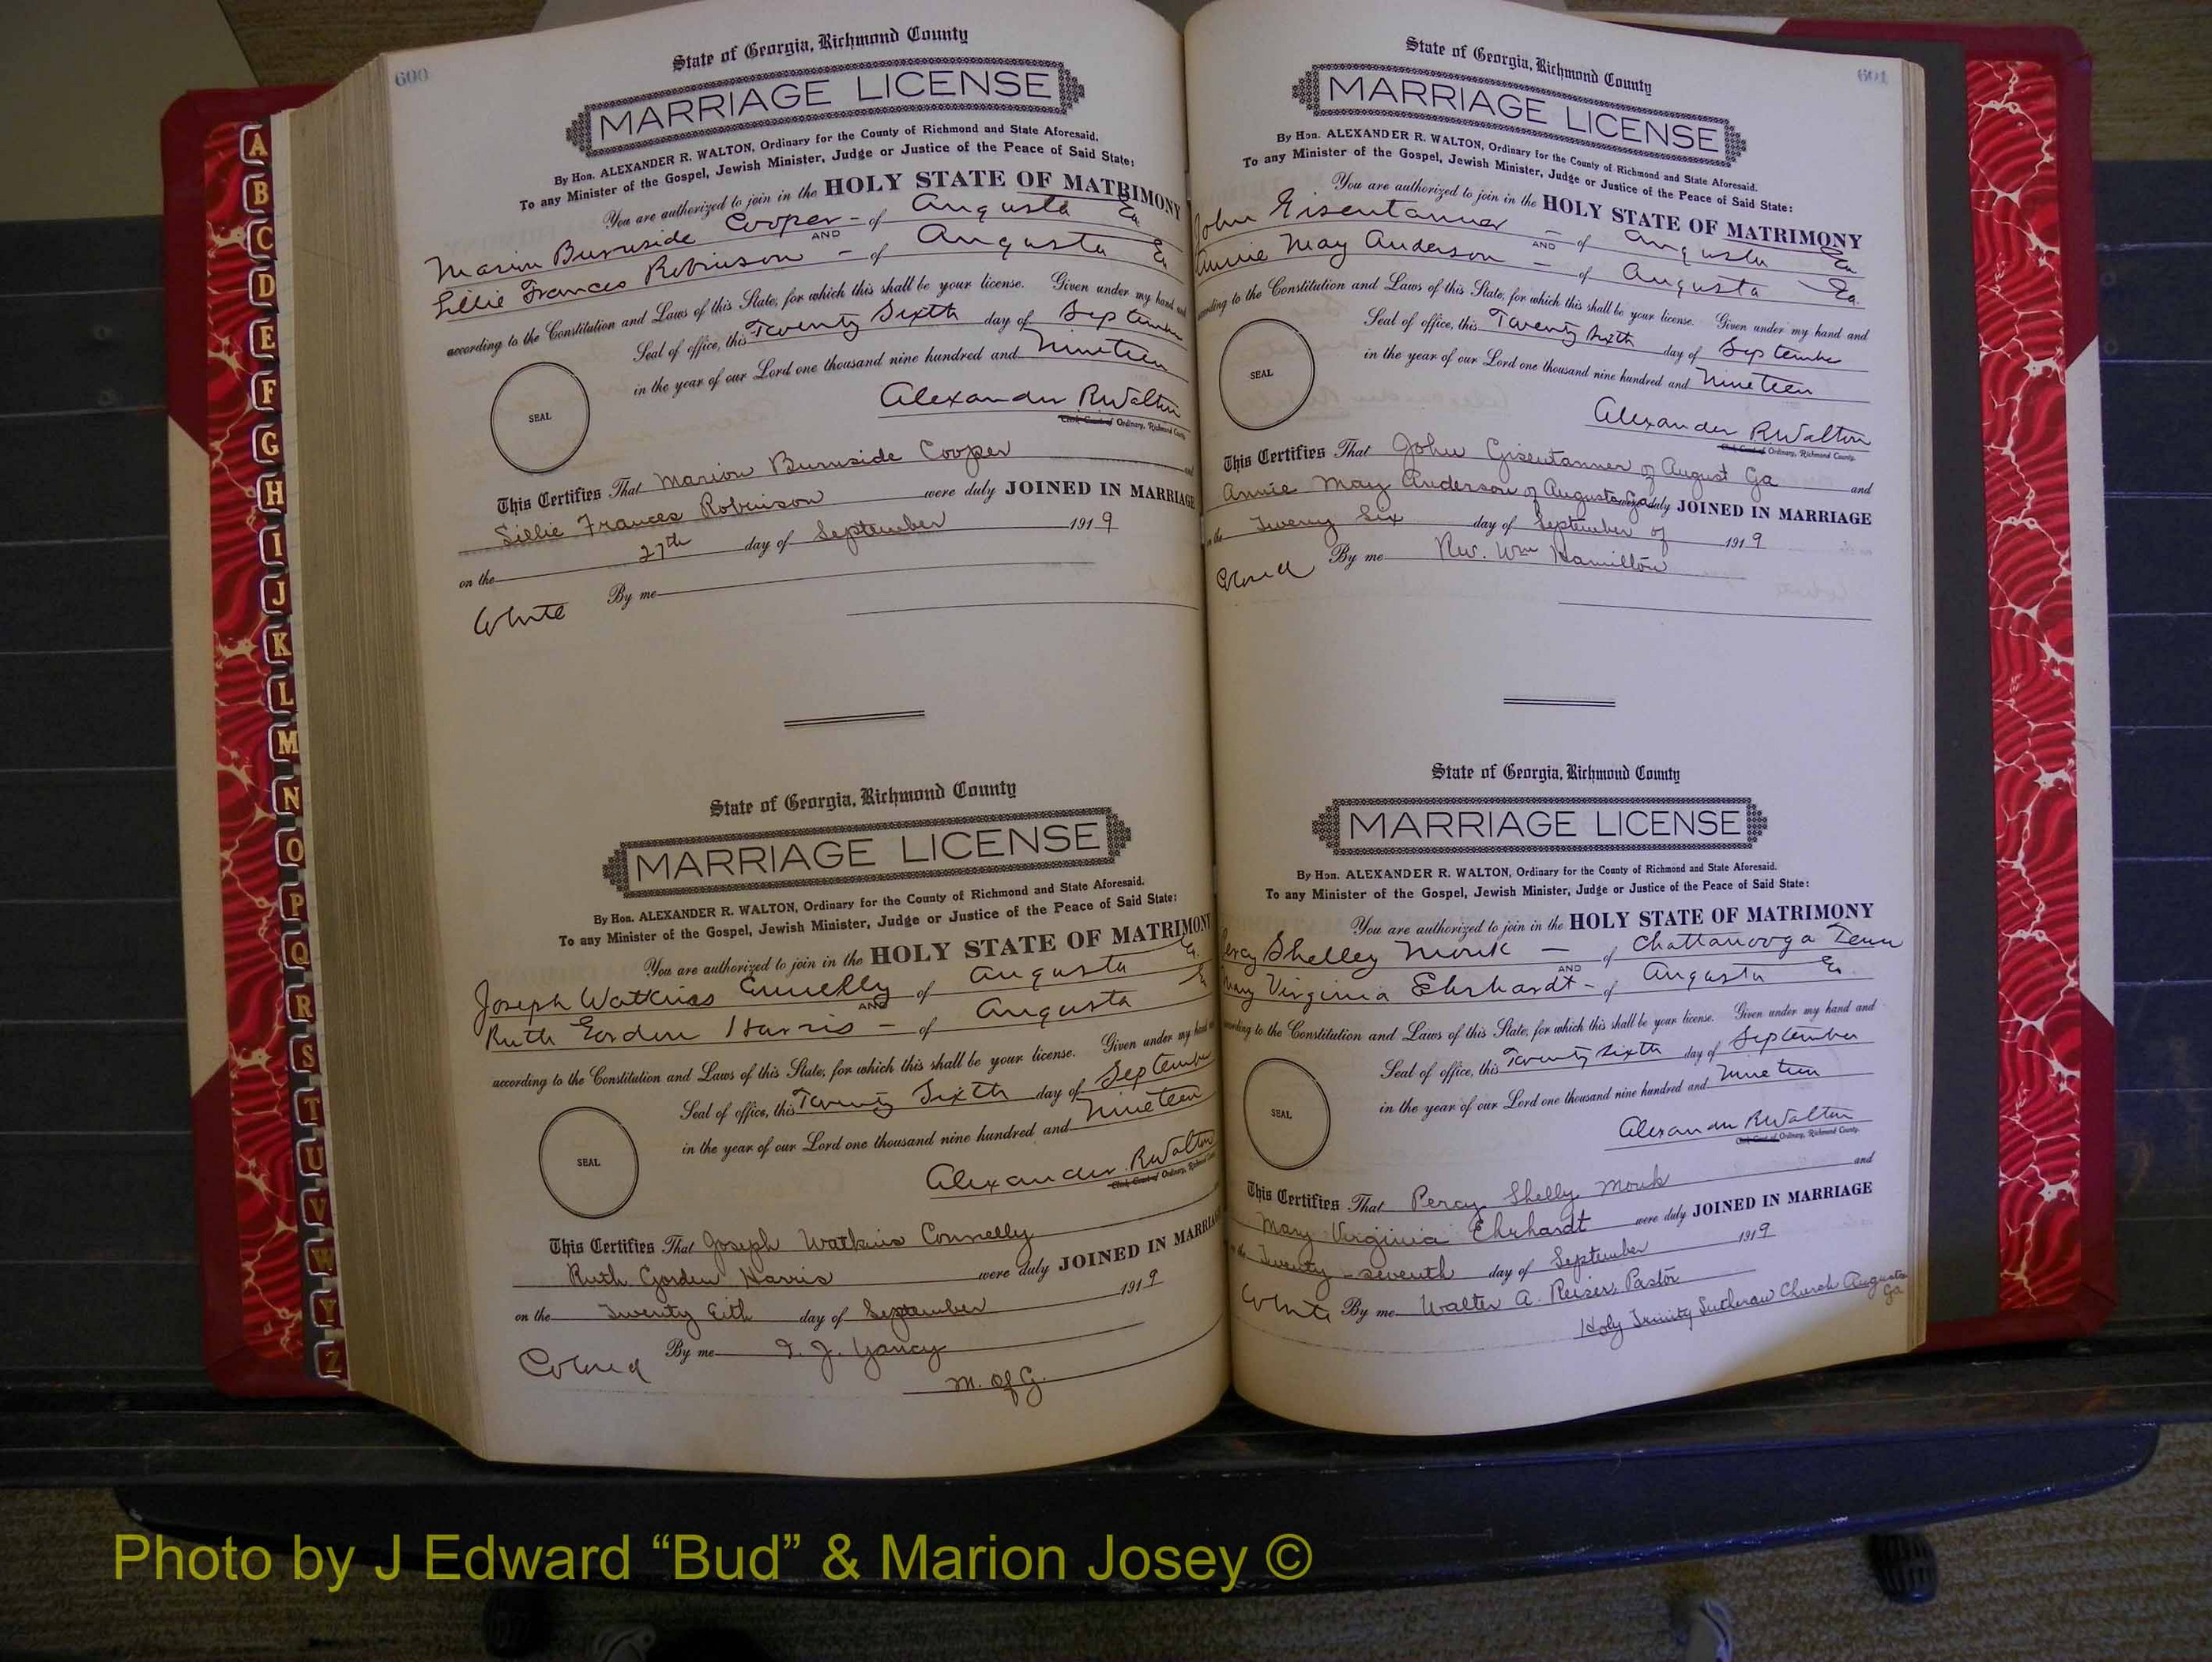 600
State of Georgia, Richmond County
MARRIAGE LICENSE
By Hon. ALEXANDER R. WALTON, Ordinary for the County of Richmond and State Aforesaid.
To any Minister of the Gospel, Jewish Minister, Judge or Justice of the Peace of Said State:
You are authorized to join in the HOLY STATE OF MATRIMONY
Marion Burnside Cooper - of Augusta Ga
AND
Lillie Frances Robinson - of Augusta Ga
according to the Constitution and Laws of this State, for which this shall be your license. Given under my hand and
Seal of office, this Twenty Sixth day of September
in the year of our Lord one thousand nine hundred and Nineteen
SEAL
Alexander R Walton
Clerk Court of Ordinary, Richmond County
This Certifies That Marion Burnside Cooper and
Lillie Frances Robinson were duly JOINED IN MARRIAGE
on the 27th day of September 1919
White By me
State of Georgia, Richmond County
MARRIAGE LICENSE
By Hon. ALEXANDER R. WALTON, Ordinary for the County of Richmond and State Aforesaid.
To any Minister of the Gospel, Jewish Minister, Judge or Justice of the Peace of Said State:
You are authorized to join in the HOLY STATE OF MATRIMONY
Joseph Watkins Connelly of Augusta Ga
AND
Ruth Gordon Harris - of Augusta Ga
according to the Constitution and Laws of this State, for which this shall be your license. Given under my hand
Seal of office, this Twenty Sixth day of September
in the year of our Lord one thousand nine hundred and Nineteen
SEAL
Alexander R Walton
Clerk Court of Ordinary, Richmond
This Certifies That Joseph Watkins Connelly
Ruth Gorden Harris were duly JOINED IN MARRIAGE
on the Twenty Eith day of September 1919
Colored By me J. Yancy
M. of G.
601
State of Georgia, Richmond County
MARRIAGE LICENSE
By Hon. ALEXANDER R. WALTON, Ordinary for the County of Richmond and State Aforesaid.
To any Minister of the Gospel, Jewish Minister, Judge or Justice of the Peace of Said State:
You are authorized to join in the HOLY STATE OF MATRIMONY
John Eisentanner - of Augusta Ga
AND
Annie May Anderson - of Augusta Ga.
according to the Constitution and Laws of this State, for which this shall be your license. Given under my hand and
Seal of office, this Twenty Sixth day of September
in the year of our Lord one thousand nine hundred and Nineteen
SEAL
Alexander R. Walton
Clerk Court of Ordinary, Richmond County.
This Certifies That John Gisentanner of August Ga and
Annie May Anderson of Augusta Ga were duly JOINED IN MARRIAGE
on the Twenty Six day of September of 1919
Colored By me Rev. Wm Hamilton
State of Georgia, Richmond County
MARRIAGE LICENSE
By Hon. ALEXANDER R. WALTON, Ordinary for the County of Richmond and State Aforesaid.
To any Minister of the Gospel, Jewish Minister, Judge or Justice of the Peace of Said State:
You are authorized to join in the HOLY STATE OF MATRIMONY
Percy Shelley Monk - of Chattanooga Tenn
AND
Mary Virginia Ehrhardt - of Augusta Ga.
according to the Constitution and Laws of this State, for which this shall be your license. Given under my hand and
Seal of office, this Twenty Sixth day of September
in the year of our Lord one thousand nine hundred and Nineteen
SEAL
Alexander R Walton
Clerk Court of Ordinary, Richmond County.
This Certifies That Percy Shelly Monk and
Mary Virginia Ehrhardt were duly JOINED IN MARRIAGE
on the Twenty-seventh day of September 1919
White By me Walter A. Reiser, Pastor
Holy Trinity Lutheran Church Augusta Ga
A
B
C
D
E
F
G
H
I
J
K
L
M
N
O
P
Q
R
S
T
U
V
W
Y
Z
Photo by J Edward “Bud” & Marion Josey ©